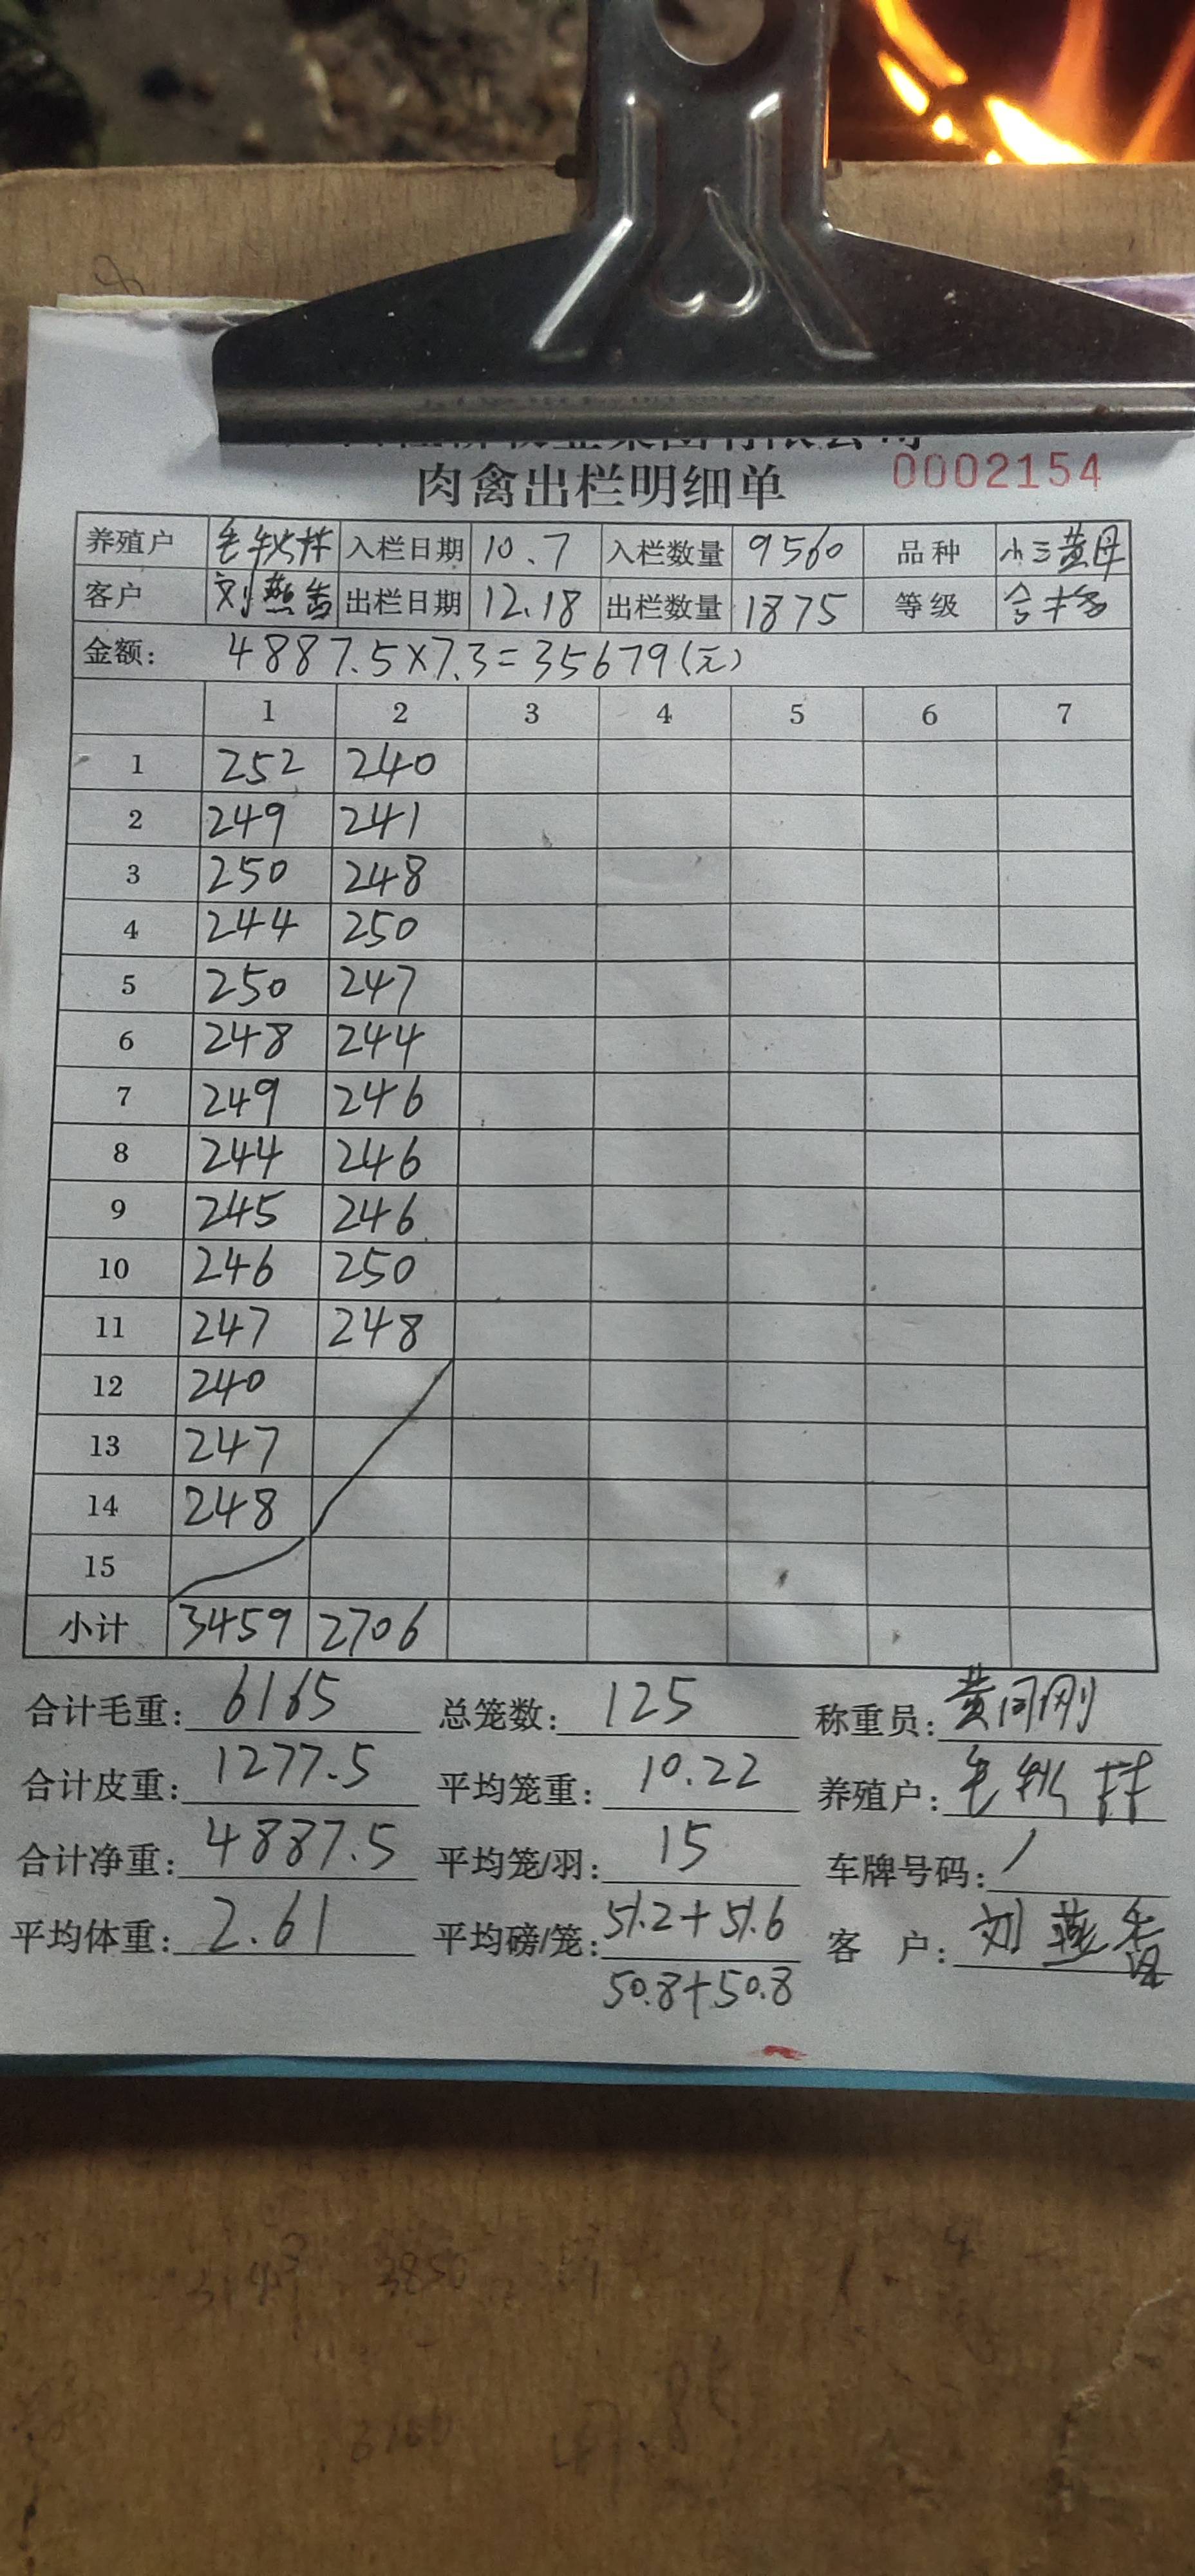 肉禽出栏明细单 0002154
养殖户 毛秋林 入栏日期 10.7 入栏数量 9560 品种 小三黄母
客户 刘燕香 出栏日期 12.18 出栏数量 1875 等级 合格
金额: 4887.5×7.3=35679(元)
1 2 3 4 5 6 7
1 252 240
2 249 241
3 250 248
4 244 250
5 250 247
6 248 244
7 249 246
8 244 246
9 245 246
10 246 250
11 247 248
12 240
13 247
14 248
15
小计 3459 2706
合计毛重: 6165 总笼数: 125 称重员: 黄同刚
合计皮重: 1277.5 平均笼重: 10.22 养殖户: 毛秋林
合计净重: 4887.5 平均笼/羽: 15 车牌号码: /
平均体重: 2.61 平均磅/笼: 51.2+51.6 客户: 刘燕香
50.8+50.8